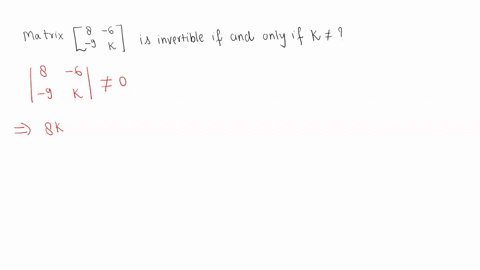 Matrix [8 -6
-9 K] is invertible if and only if K ≠ ?
|8 -6
-9 K| ≠ 0
⇒ 8K